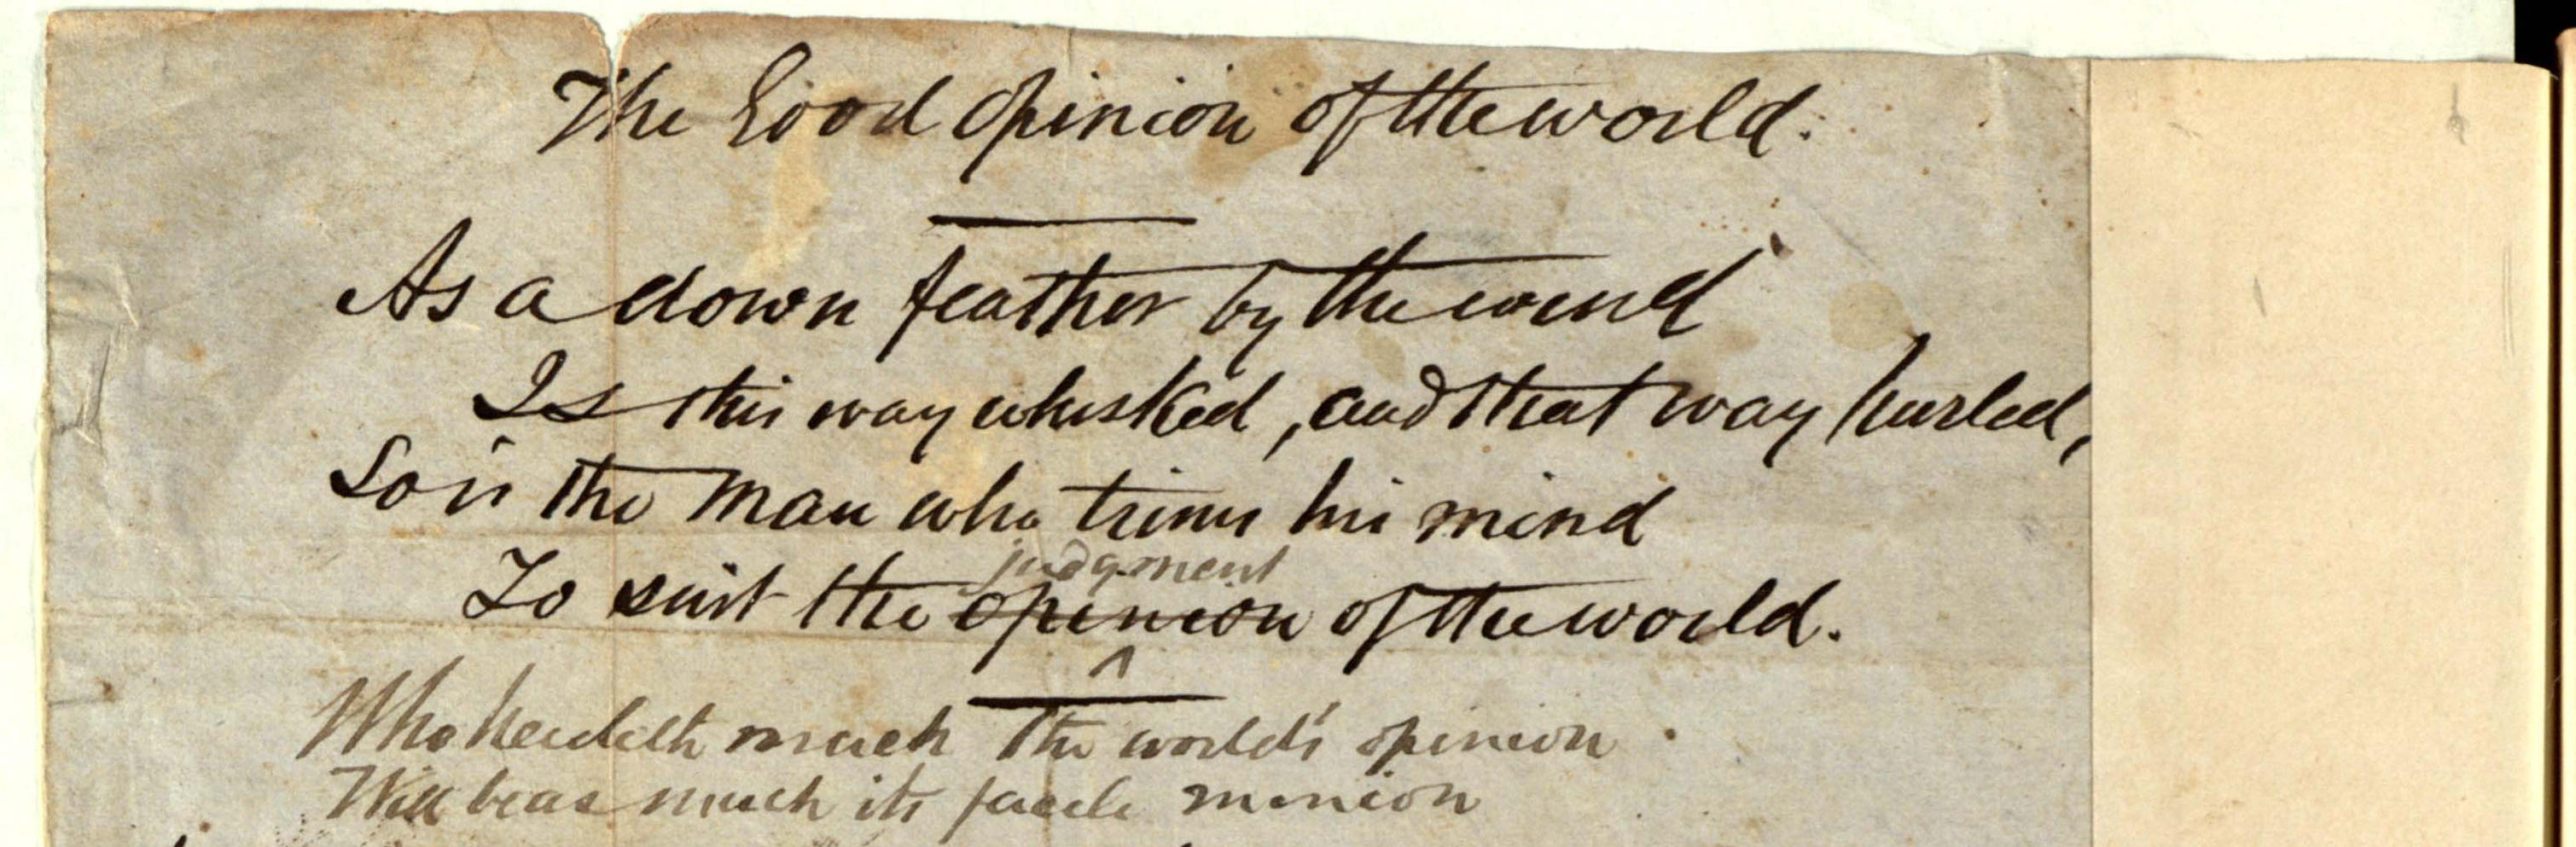 The Good Opinion of the world.
As a down feather by the wind
Is this way whisked, and that way hurled,
So is the man who trims his mind
judgment
To suit the opinion of the world.
^
Who heedeth much the world's opinion
Will be as much its facile minion